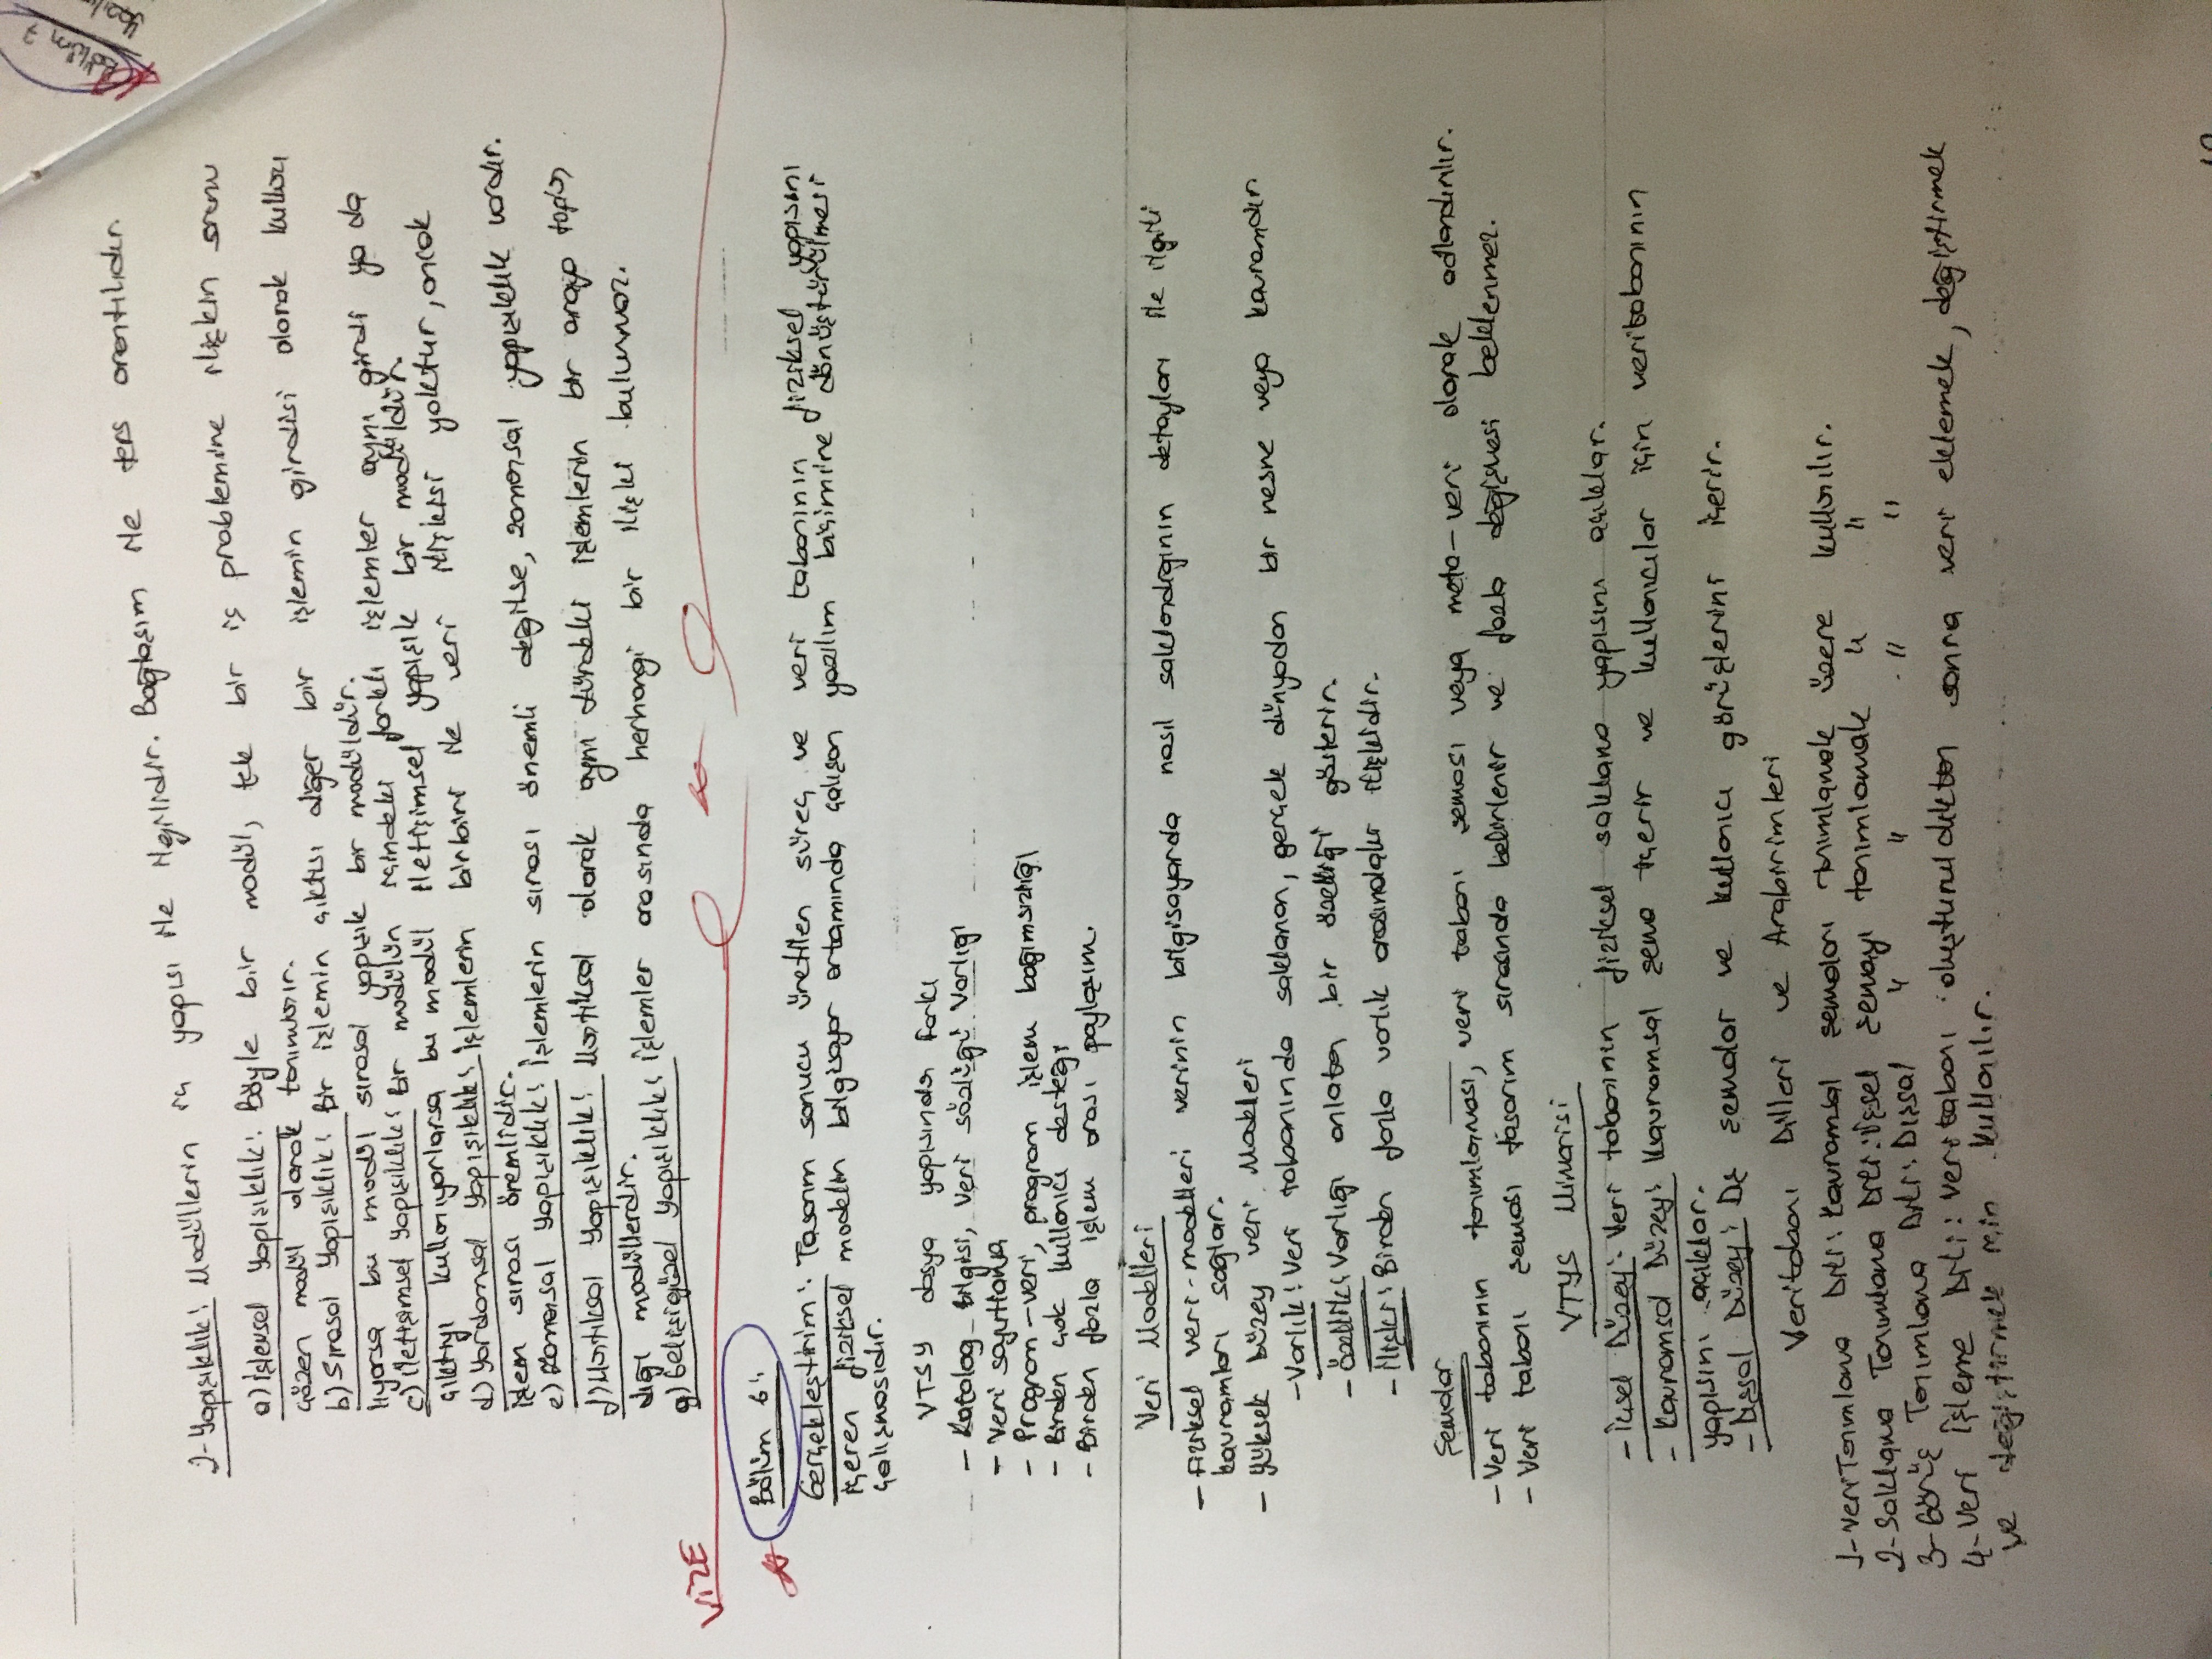 2-Yapışıklık: Modüllerin iç yapısı ile ilgilidir. Bağlaşım ile ters orantılıdır.
a) İşlevsel Yapışıklık: Böyle bir modül, tek bir iş problemine ilişkin sorunu
çözen modül olarak tanımlanır.
b) Sırasal Yapışıklık: Bir işlemin çıktısı diğer bir işlemin girdisi olarak kullanı
lıyorsa bu modül sırasal yapışık bir modüldür.
c) İletişimsel Yapışıklık: Bir modülün içindeki farklı işlemler aynı girdi ya da
çıktıyı kullanıyorlarsa bu modül iletişimsel yapışık bir modüldür.
d) Yordamsal Yapışıklık: İşlemlerin birbiri ile veri ilişkisi yoktur, ancak
işlem sırası önemlidir.
e) Zamansal Yapışıklık: İşlemlerin sırası önemli değilse, zamansal yapışıklık vardır.
f) Mantıksal Yapışıklık: Mantıksal olarak aynı türdeki işlemlerin bir araya toplan
dığı modüllerdir.
g) Gelişigüzel Yapışıklık: İşlemler arasında herhangi bir ilişki bulunmaz.
VİZE
Bölüm 6:
Gerçekleştirim: Tasarım sonucu üretilen süreç ve veri tabanının fiziksel yapısını
içeren fiziksel modelin bilgisayar ortamında çalışan yazılım biçimine dönüştürülmesi
çalışmasıdır.
VTSY dosya yapısından farkı
- Katalog Bilgisi, Veri sözlüğü Varlığı
- Veri soyutlama
- Program-veri, program işlem bağımsızlığı
- Birden çok kullanıcı desteği
- Birden fazla işlem arası paylaşım.
Veri Modelleri
- Fiziksel veri-modelleri verinin bilgisayarda nasıl saklandığının detayları ile ilgili
kavramları sağlar.
- Yüksek Düzey veri Modelleri
- Varlık: Veri tabanında saklanan, gerçek dünyadan bir nesne veya kavramdır
- Özellik: Varlığı anlatan bir özelliği gösterir.
- İlişki: Birden fazla varlık arasındaki ilişkidir.
Şemalar
- Veri tabanının tanımlaması, veri tabanı şeması veya meta-veri olarak adlandırılır.
- Veri tabanı şeması tasarım sırasında belirlenir ve fazla değişmesi beklenmez.
VTYS Mimarisi
- İçsel Düzey: Veri tabanının fiziksel saklama yapısını açıklar.
- Kavramsal Düzey: Kavramsal şema içerir ve kullanıcılar için veritabanının
yapısını açıklar.
- Dışsal Düzey: Dış şemalar ve kullanıcı görüşlerini içerir.
Veritabanı Dilleri ve Arabirimleri
1-Veri Tanımlama Dili: Kavramsal şemaları tanımlamak üzere kullanılır.
2-Saklama Tanımlama Dili: İçsel şemayı tanımlamak " "
3-Görüş Tanımlama Dili: Dışsal " " " "
4-Veri İşleme Dili: Veritabanı oluşturulduktan sonra veri eklemek, değiştirmek
ve değiştirmek için kullanılır.
Bölüm 7